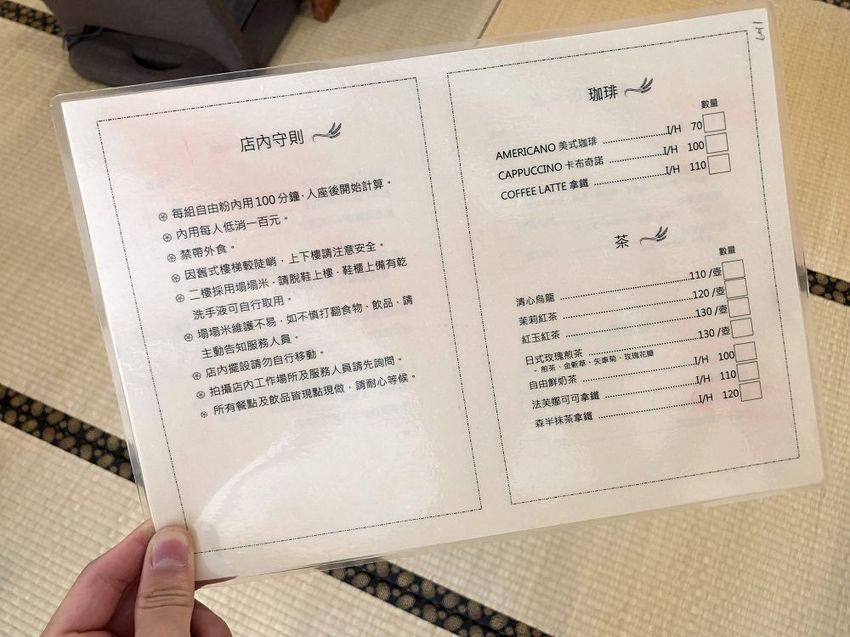 店內守則
每組自由粉內用100分鐘，入座後開始計算。
內用每人低消一百元。
禁帶外食。
因舊式樓梯較陡峭，上下樓請注意安全。
二樓採用塌塌米，請脫鞋上樓，鞋櫃上備有乾
洗手液可自行取用。
塌塌米維護不易，如不慎打翻食物、飲品，請
主動告知服務人員。
店內擺設請勿自行移動。
拍攝店內工作場所及服務人員請先詢問。
所有餐點及飲品皆現點現做，請耐心等候。
珈琲
數量
AMERICANO 美式珈琲 I/H 70
CAPPUCCINO 卡布奇諾 I/H 100
COFFEE LATTE 拿鐵 I/H 110
茶
數量
清心烏龍 110 /壺
茉莉紅茶 120 /壺
紅玉紅茶 130 /壺
日式玫瑰煎茶 130 /壺
- 煎茶、金盞草、矢車菊、玫瑰花瓣
自由鮮奶茶 I/H 100
法芙娜可可拿鐵 I/H 110
森半抹茶拿鐵 I/H 120